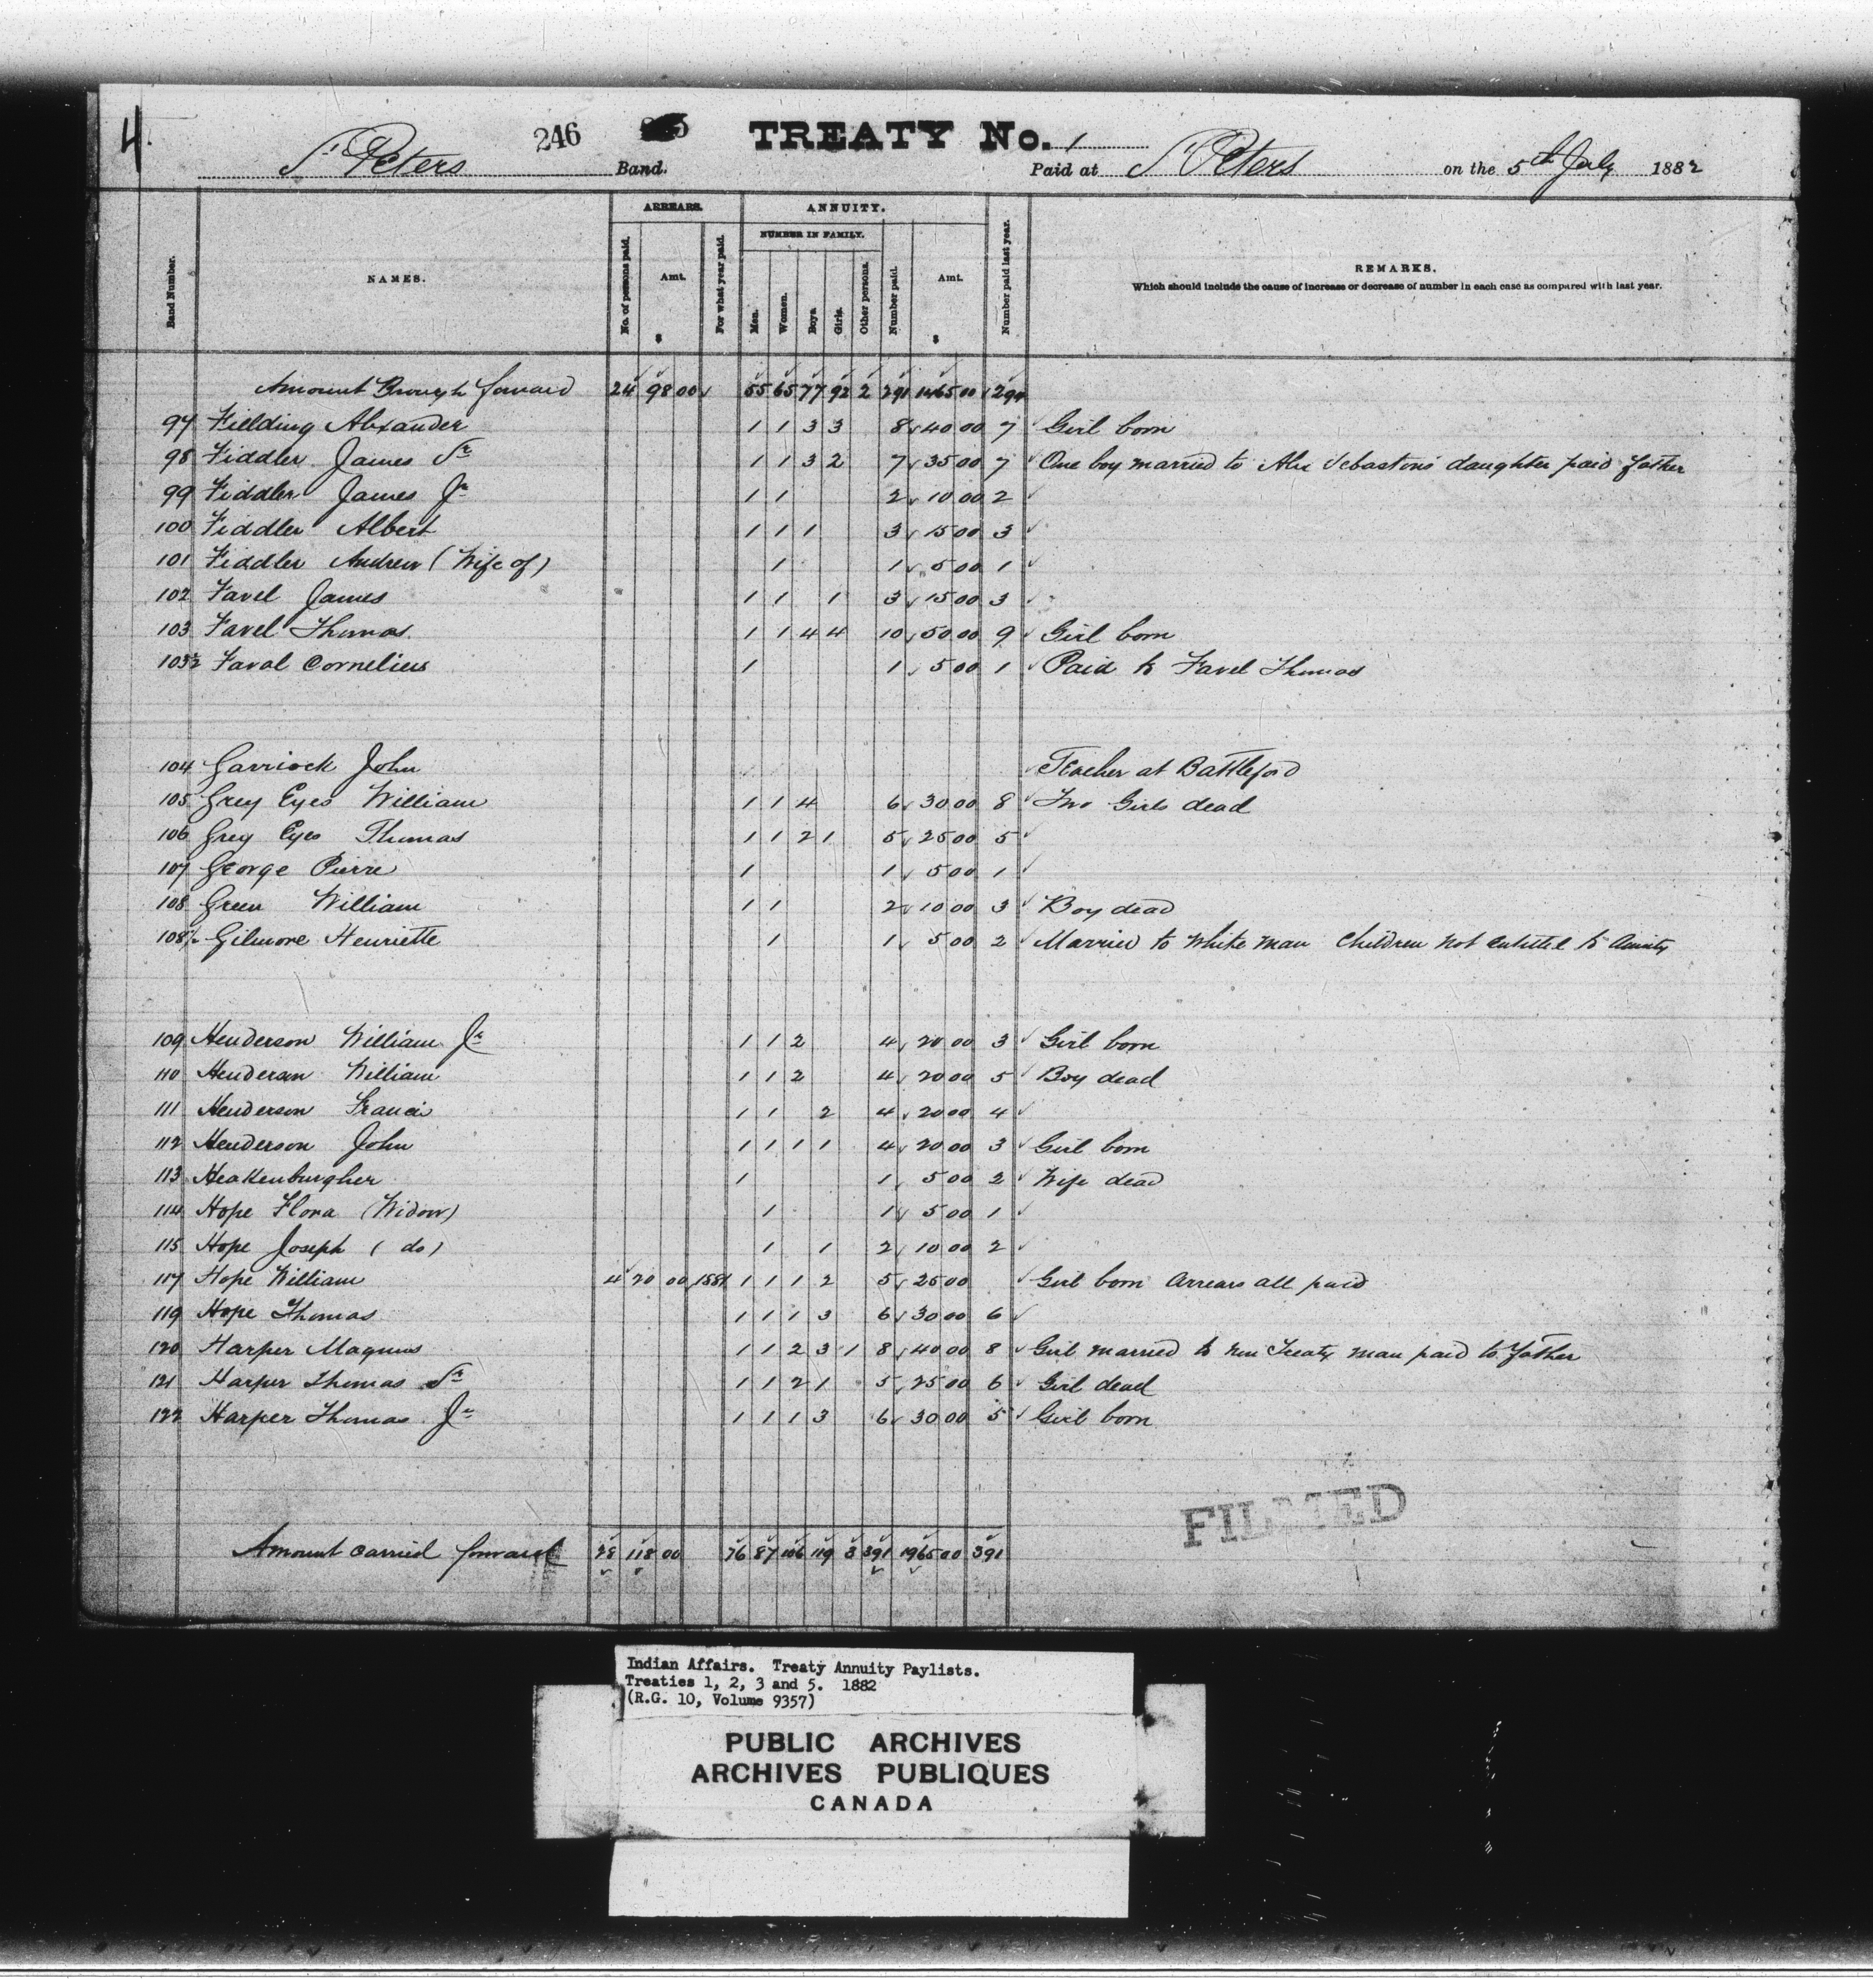 4.
246
TREATY No. 1
St Peters Band. Paid at St Peters on the 5th July 1882
ARREARS. ANNUITY.
NUMBER IN FAMILY.
Band Number. NAMES. No. of persons paid. Amt. $ For what year paid. Men. Women. Boys Girls. Other persons. Number paid. Amt. $ Number paid last year. REMARKS.
Which should include the cause of increase or decrease of number in each case as compared with last year.
Amount Brough forward 24 98 00 55 65 77 92 2 291 1465 00 294
97 Fielding Alexander 1 1 3 3 8 40 00 7 Girl born
98 Fiddler James Sr 1 1 3 2 7 35 00 7 One boy married to Alex Sebastons daughter paid father
99 Fiddler James Jr 1 1 2 10 00 2
100 Fiddler Albert 1 1 1 3 15 00 3
101 Fiddler Andrew (Wife of) 1 1 5 00 1
102 Favel James 1 1 1 3 15 00 3
103 Favel Thomas 1 1 4 4 10 50 00 9 Girl born
103½ Faval Cornelius 1 1 5 00 1 Paid to Favel Thomas
104 Garriock John Teacher at Battleford
105 Grey Eyes William 1 1 4 6 30 00 8 Two Girls dead
106 Grey Eyes Thomas 1 1 2 1 5 25 00 5
107 George Pierre 1 1 5 00 1
108 Green William 1 1 2 10 00 3 Boy dead
108½ Gilmore Henriette 1 1 5 00 2 Married to white man Children not entitled to
109 Henderson William Jr 1 1 2 4 20 00 3 Girl born
110 Henderson William 1 1 2 4 20 00 5 Boy dead
111 Henderson Francis 1 1 2 4 20 00 4
112 Henderson John 1 1 1 1 4 20 00 3 Girl born
113 Heakenburgher 1 1 5 00 2 Wife dead
114 Hope Flora (Widow) 1 1 5 00 1
115 Hope Joseph (do) 1 1 2 10 00 2
117 Hope William 4 20 00 1881 1 1 1 2 5 25 00 Girl born arrears all paid
119 Hope Thomas 1 1 1 3 6 30 00 6
120 Harper Magnus 1 1 2 3 1 8 40 00 8 Girl married to non Treaty man paid to father
121 Harper Thomas Sr 1 1 2 1 5 25 00 6 Girl dead
122 Harper Thomas Jr 1 1 1 3 6 30 00 5 Girl born
FILMED
Amount carried forward 28 118 00 76 87 106 119 3 391 1965 00 391
Indian Affairs. Treaty Annuity Paylists.
Treaties 1, 2, 3 and 5. 1882
(R.G. 10, Volume 9357)
PUBLIC ARCHIVES
ARCHIVES PUBLIQUES
CANADA